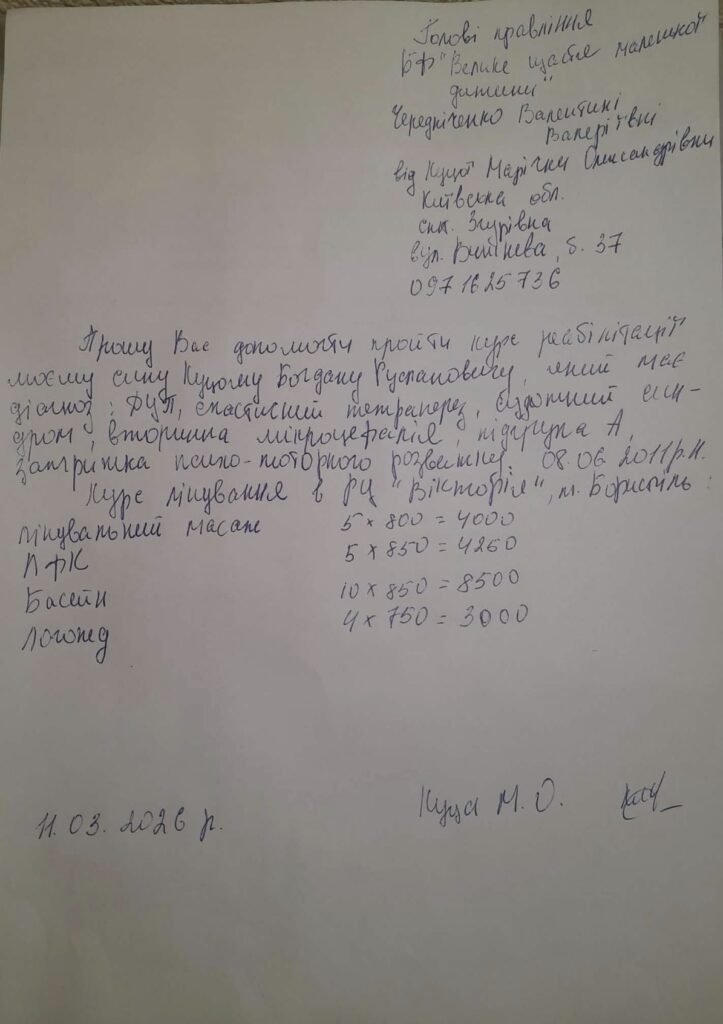 Голові правління
БФ "Велике щастя маленької
дитини"
Чередніченко Валентині
Валеріївні
від Куцої Марічки Олександрівни
Київська обл.
смт. Згурівка
вул. Вишнева, б. 37
0971625736
Прошу Вас допомогти пройти курс реабілітації
моєму сину Куцому Богдану Руслановичу, який має
діагноз: ДЦП, спастисний тетрапарез, судомний син-
дром, вторинна мікроцефалія, підгрупа А,
затримка психо-моторного розвитку. 08.06.2011р.н.
Курс лікування в РЦ "Вікторія", м. Бориспіль:
лікувальний масаж 5 × 800 = 4000
ЛФК 5 × 850 = 4250
Басейн 10 × 850 = 8500
Логопед 4 × 750 = 3000
11.03.2026 р. Куца М. О.